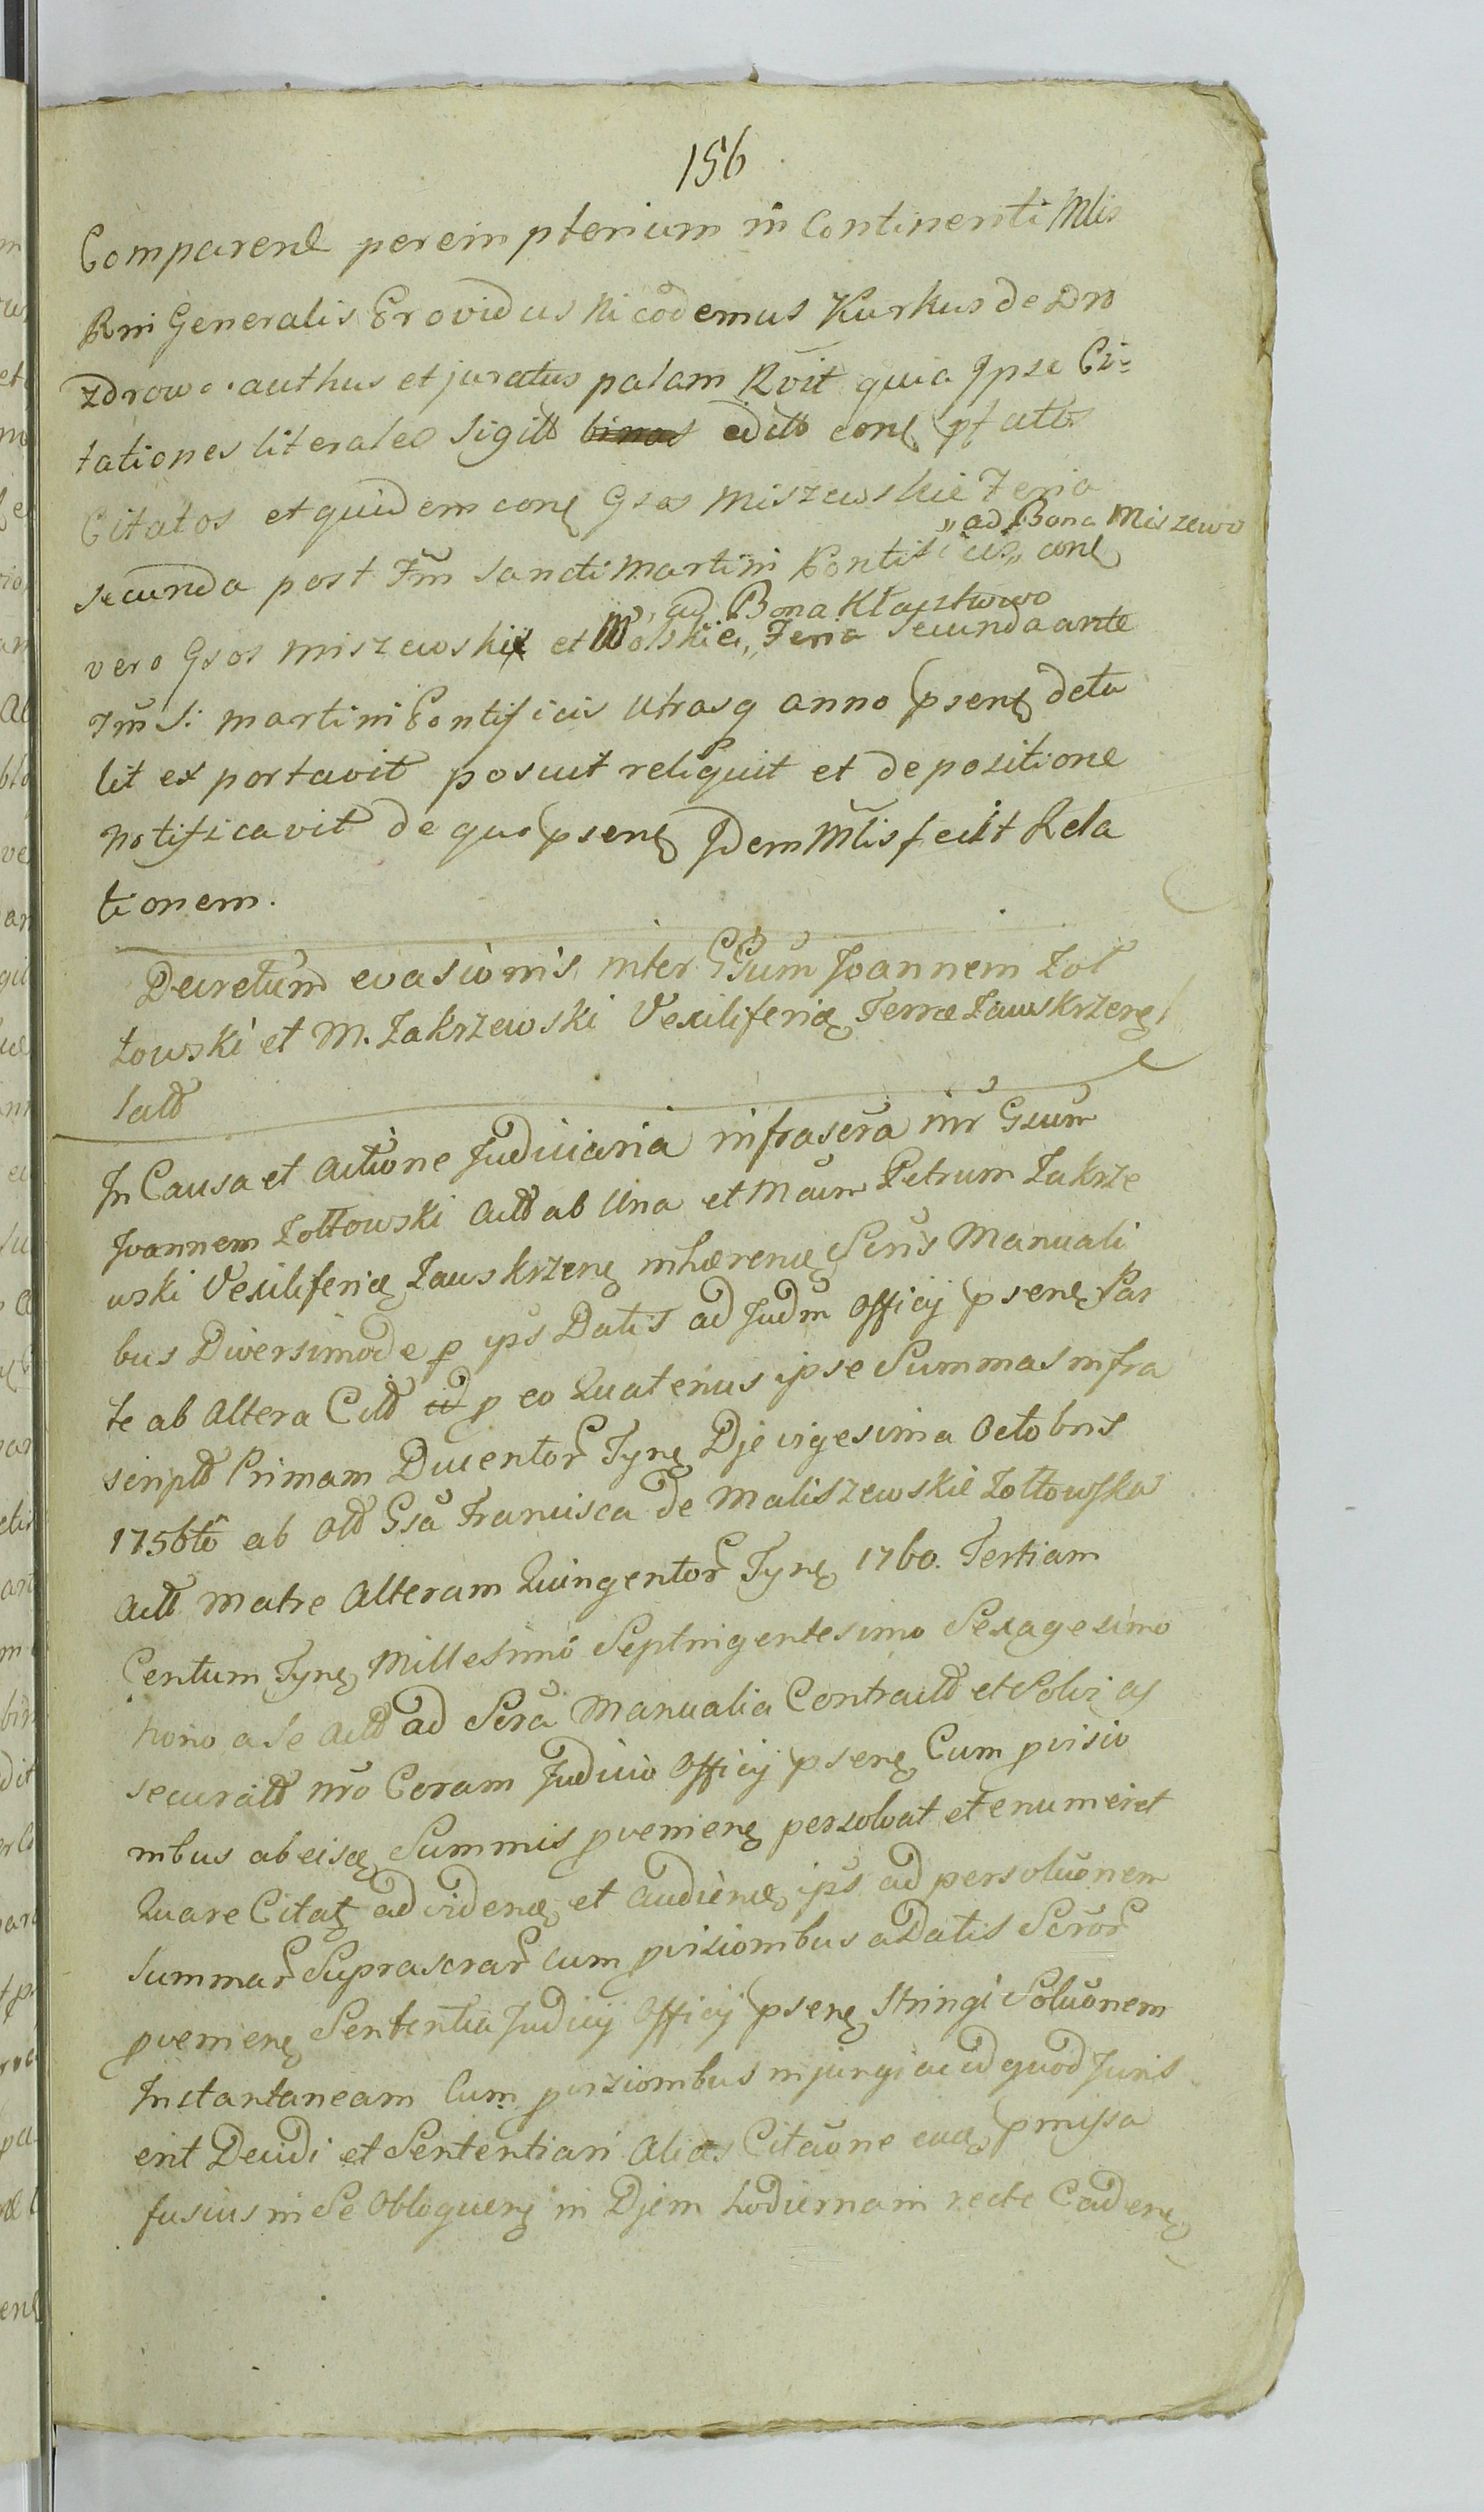 156
Comparenę peremptorium in Continenti Mlis
Rni Generalis Providus Nicodemus Kurkus de Dro
zdrowo authus et juratus palam Rvit quia Ipse Ci-
tationes literales Sigill binas edill conę pfatos
Citatos et quidem conę Gsos Miszewskie Feria
„ad Bona Miszewo
secunda post Fm Sancti Martini Pontificis„ conę
„ad Bona Kłaistwowo
vero Gsos Miszewskie et Wolskie„ Feria secunda ante
Fm S: Martini Pontificis Utrasq anno psenę detu
lit exportavit posuit reliquit et depositione
notificavit de quo psenę Idem Mlis fecit Rela
tionem.
Decretum evasionis inter GGsum Joannem Zoł
towski et M. Zakrzewski Vexiliferią Terræ Zawskrzenę
latt
In Causa et Actione Judiciaria infrascra inr Gsum
Joannem Zołtowski Actt ab Una et Mcum Petrum Zakrze
wski Vexiliferią Zawskrzenę inhærenę Scris Manuali
bus Diversimode p ips Datis ad Judm Officij psenę Par
te ab Altera Citt id p eo Quatenus ipse Summas infra
scriptt Primam Ducentor Tynę Dje vigesima Octobris
1756to ab Ott Gsa Francisca de Maliszewskie Zołtowska
Actt Matre Alteram Quingentor Tynę 1760. Tertiam
Centum Tynę Millesimo Septingentesimo Sexagesimo
nono a Se Actt ad Scra Manualia Contractt et Solvi as
securatt nro Coram Judicio Officij psenę Cum pvisio
nibus ab eisą Summis pvenienę persolvat et enumeret
Quare Citatę ad videnę et audienę ips ad persoluonem
Summar Suprascrar cum pvisionibus a Datis Scror
pvenienę Sententia Judicij Officij psenę stringi Soluonem
Instantaneam Cum pvisionibus injungi ac id quod Juris
erit Decidi et Sententiari Alias Citaone eaą pmissa
fusius in Se Obloquenę in Djem hodiernam recte Cadenę